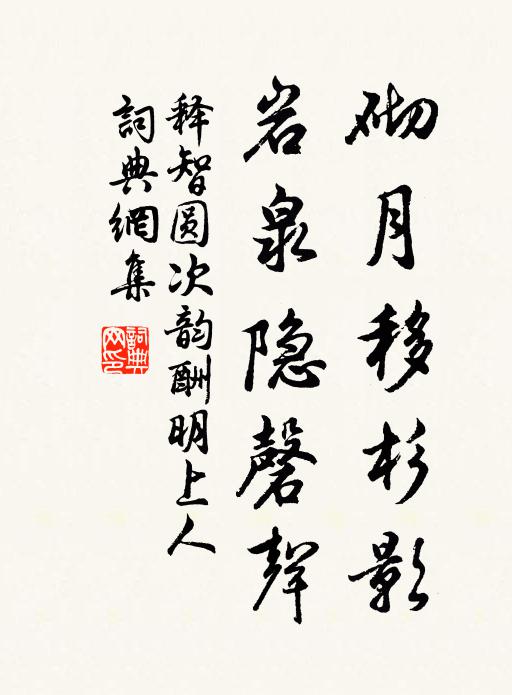 砌月移杉影
岩泉隐磬聲
释智圆次韵酬明上人
詞典網集
詞典網印